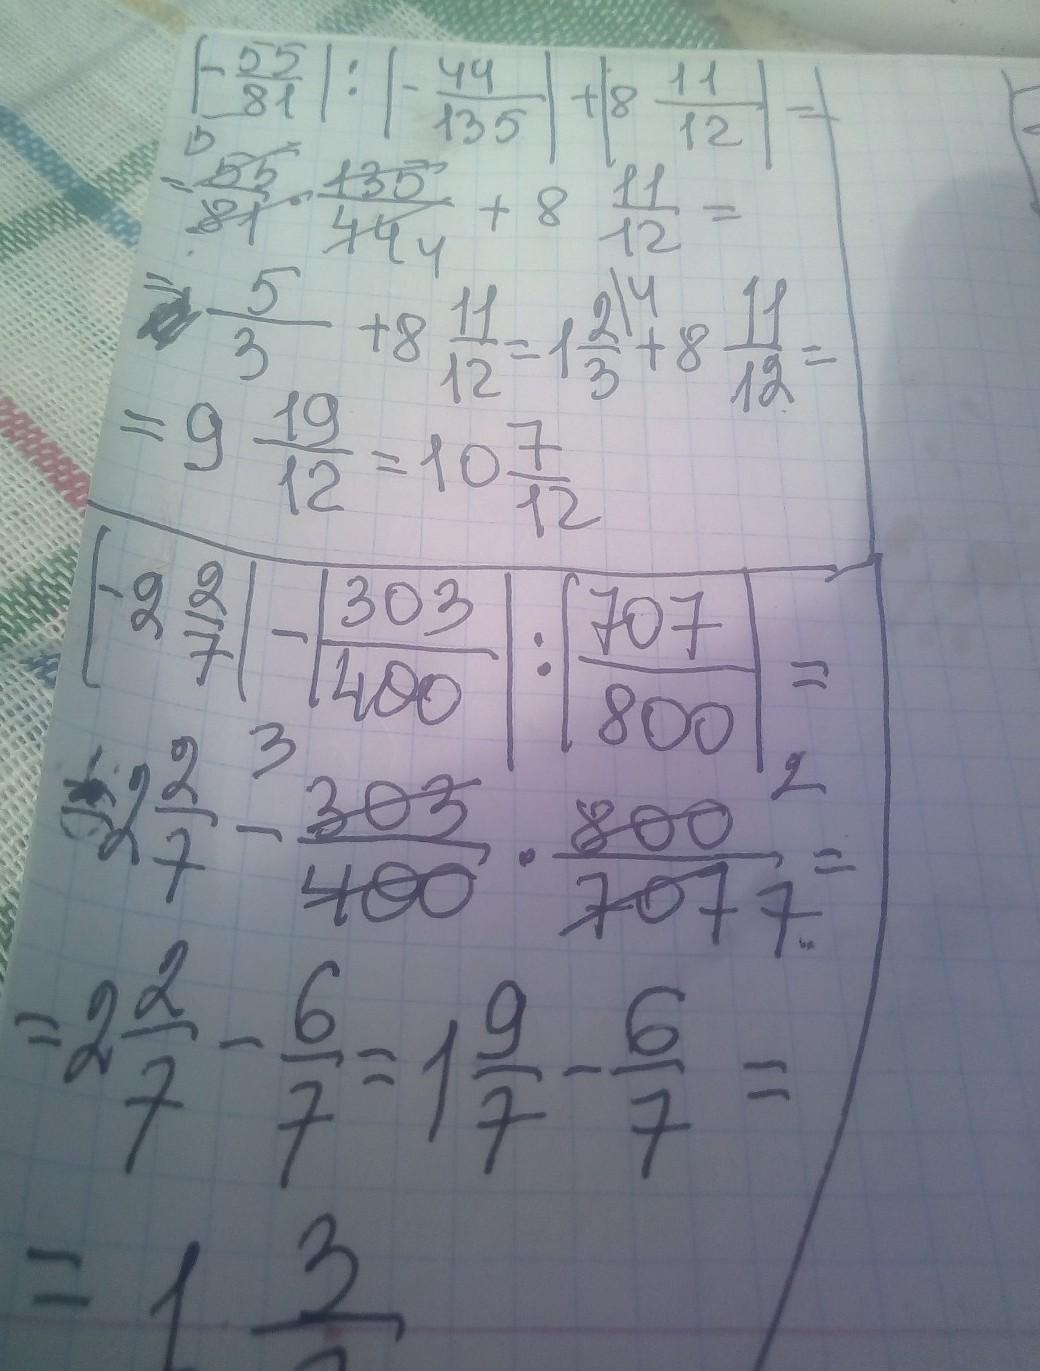 |-55/81| : |-44/135| + |8 11/12| =
= 55/81 · 135/44 + 8 11/12 =
= 5/3 + 8 11/12 = 1 2/3 + 8 11/12 =
= 9 19/12 = 10 7/12
|-2 2/7| - |303/400| : |707/800| =
= 2 2/7 - 303/400 · 800/707 =
= 2 2/7 - 6/7 = 1 9/7 - 6/7 =
= 1 3